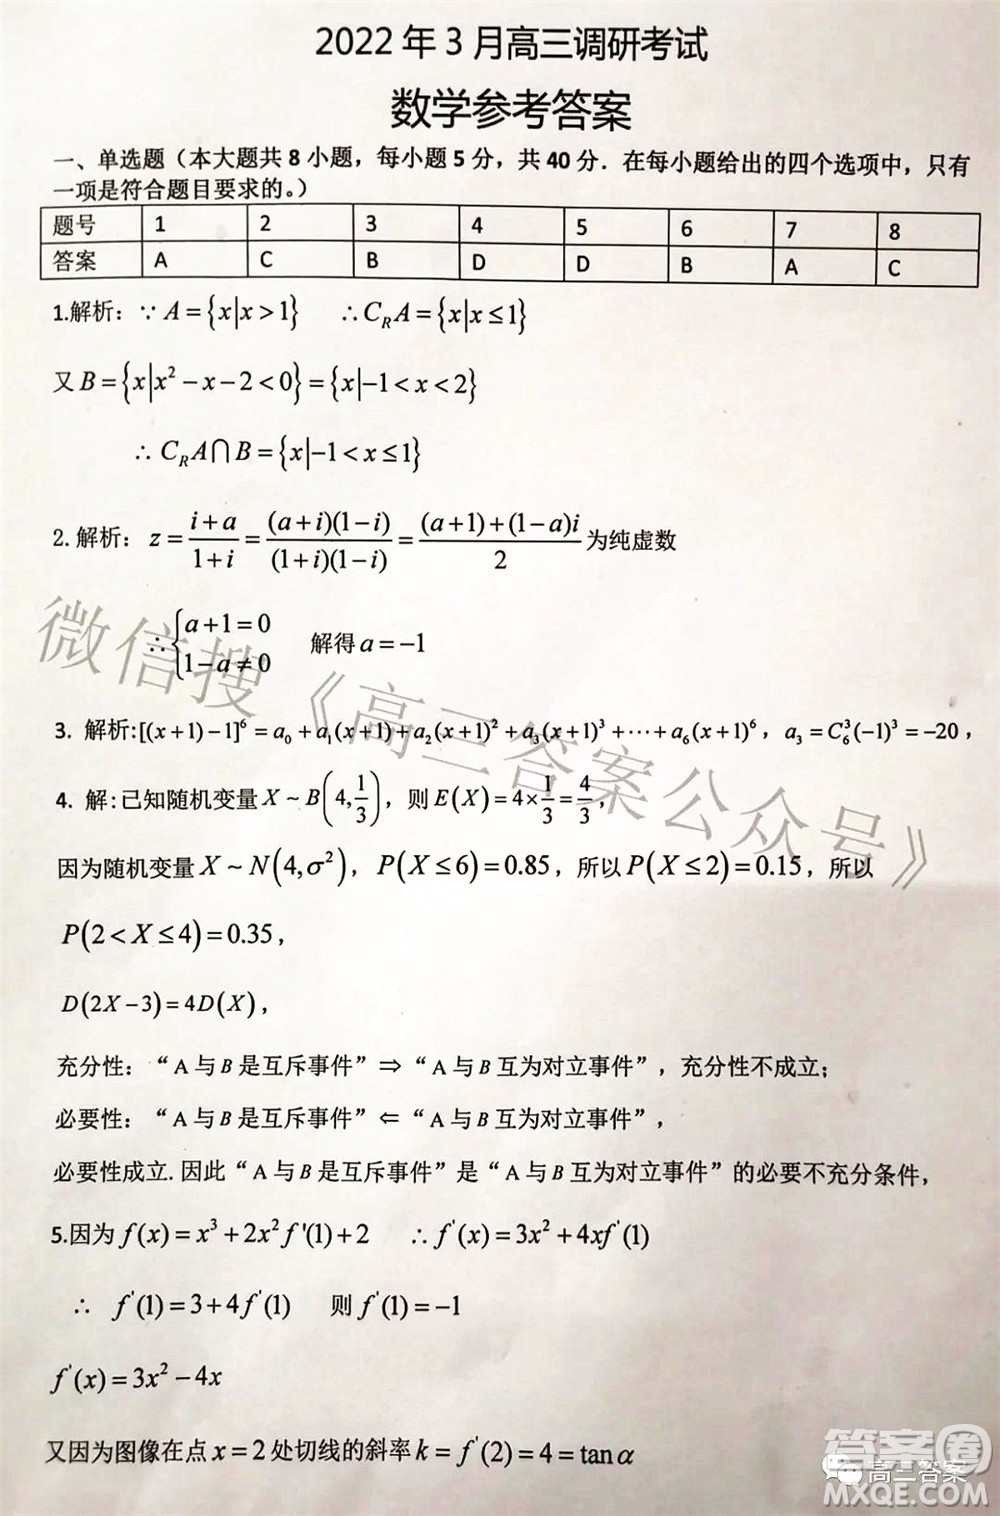 2022 年 3 月高三调研考试
数学参考答案
一、单选题（本大题共 8 小题，每小题 5 分，共 40 分．在每小题给出的四个选项中，只有
一项是符合题目要求的。）
题号 1 2 3 4 5 6 7 8
答案 A C B D D B A C
1.解析：∵ A = {x|x > 1} ∴ C_R A = {x|x ≤ 1}
又 B = {x|x² − x − 2 < 0} = {x|−1 < x < 2}
∴ C_R A ∩ B = {x|−1 < x ≤ 1}
2. 解析：z = (i+a)/(1+i) = (a+i)(1−i)/(1+i)(1−i) = ((a+1)+(1−a)i)/2 为纯虚数
∴ {a+1=0
1−a≠0 解得 a = −1
3. 解析:[(x+1)−1]⁶ = a₀ + a₁(x+1) + a₂(x+1)² + a₃(x+1)³ + ⋯ + a₆(x+1)⁶，a₃ = C₆³(−1)³ = −20，
4. 解:已知随机变量 X ~ B(4, 1/3)，则 E(X) = 4×1/3 = 4/3，
因为随机变量 X ~ N(4,σ²)，P(X ≤ 6) = 0.85，所以 P(X ≤ 2) = 0.15，所以
P(2 < X ≤ 4) = 0.35，
D(2X−3) = 4D(X)，
充分性：“A 与 B 是互斥事件” ⇒ “A 与 B 互为对立事件”，充分性不成立；
必要性：“A 与 B 是互斥事件” ⇐ “A 与 B 互为对立事件”，
必要性成立.因此“A 与 B 是互斥事件”是“A 与 B 互为对立事件”的必要不充分条件，
5.因为 f(x) = x³ + 2x² f'(1) + 2 ∴ f'(x) = 3x² + 4xf'(1)
∴ f'(1) = 3 + 4f'(1) 则 f'(1) = −1
f'(x) = 3x² − 4x
又因为图像在点 x = 2 处切线的斜率 k = f'(2) = 4 = tan α
微信搜《高三答案公众号》
高三答案
答案圈
MXQE.COM